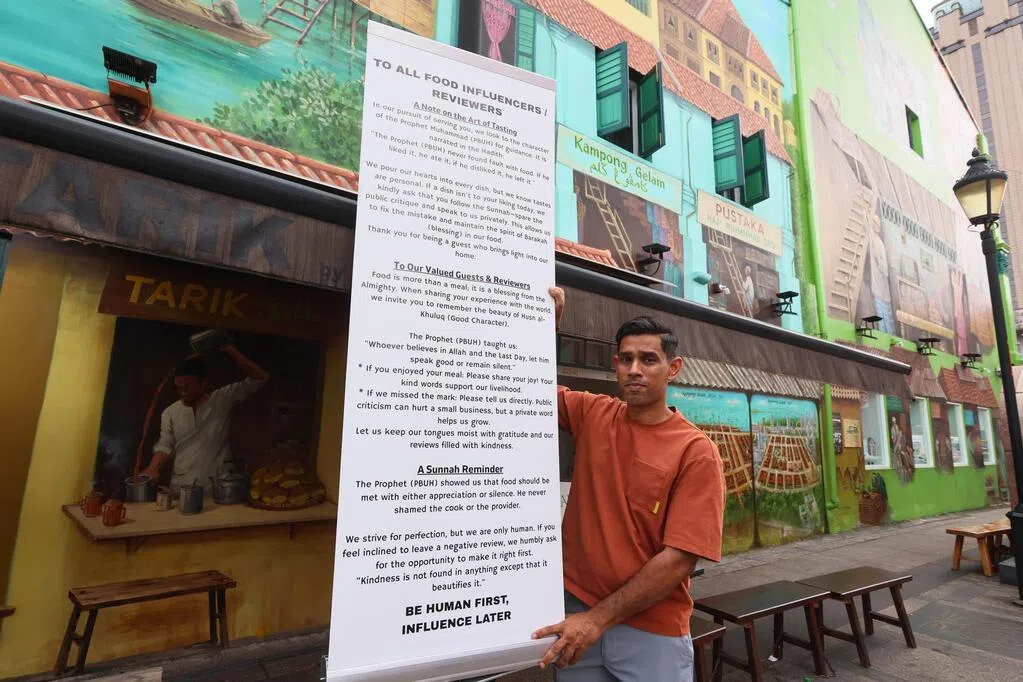 TO ALL FOOD INFLUENCERS /
REVIEWERS
A Note on the Art of Tasting
In our pursuit of serving you, we look to the character
of the Prophet Muhammad (PBUH) for guidance. It is
narrated in the Hadith.
"The Prophet (PBUH) never found fault with food. If he
liked it, he ate it; if he disliked it, he left it."
We pour our hearts into every dish, but we know tastes
are personal. If a dish isn't to your liking today, we
kindly ask that you follow the Sunnah—spare the
public critique and speak to us privately. This allows us
to fix the mistake and maintain the spirit of Barakah
(blessing) in our food.
Thank you for being a guest who brings light into our
home.
To Our Valued Guests & Reviewers
Food is more than a meal; it is a blessing from the
Almighty. When sharing your experience with the world,
we invite you to remember the beauty of Husn al-
Khuluq (Good Character).
The Prophet (PBUH) taught us:
"Whoever believes in Allah and the Last Day, let him
speak good or remain silent."
* If you enjoyed your meal: Please share your joy! Your
kind words support our livelihood.
* If we missed the mark: Please tell us directly. Public
criticism can hurt a small business, but a private word
helps us grow.
Let us keep our tongues moist with gratitude and our
reviews filled with kindness.
A Sunnah Reminder
The Prophet (PBUH) showed us that food should be
met with either appreciation or silence. He never
shamed the cook or the provider.
We strive for perfection, but we are only human. If you
feel inclined to leave a negative review, we humbly ask
for the opportunity to make it right first.
"Kindness is not found in anything except that it
beautifies it."
BE HUMAN FIRST,
INFLUENCE LATER
TARIK
Kampong Gelam
كامڤوڠ ݢلم
PUSTAKA